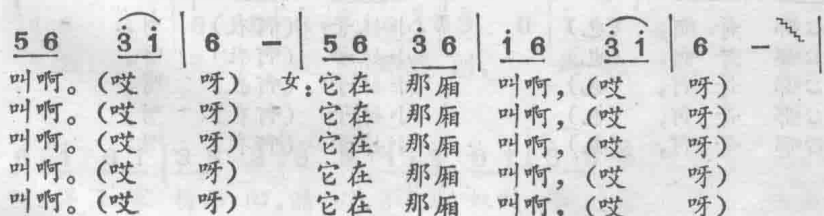 5 6 3 1 | 6 － | 5 6 3 6 | 1 6 3 1 | 6 －
叫啊。(哎 呀) 女:它在 那厢 叫啊,(哎 呀)
叫啊。(哎 呀) 它在 那厢 叫啊,(哎 呀)
叫啊。(哎 呀) 它在 那厢 叫啊,(哎 呀)
叫啊。(哎 呀) 它在 那厢 叫啊,(哎 呀)
叫啊。(哎 呀) 它在 那厢 叫啊,(哎 呀)